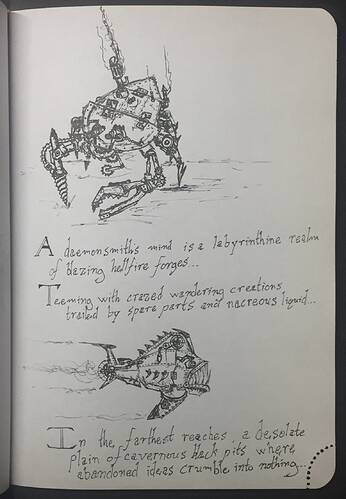 A daemonsmiths mind is a labyrinthine realm
of blazing hellfire forges...
Teeming with crazed wandering creations,
trailed by spare parts and nacreous liquid...
In the farthest reaches, a desolate
plain of cavernous black pits where
abandoned ideas crumble into nothing...